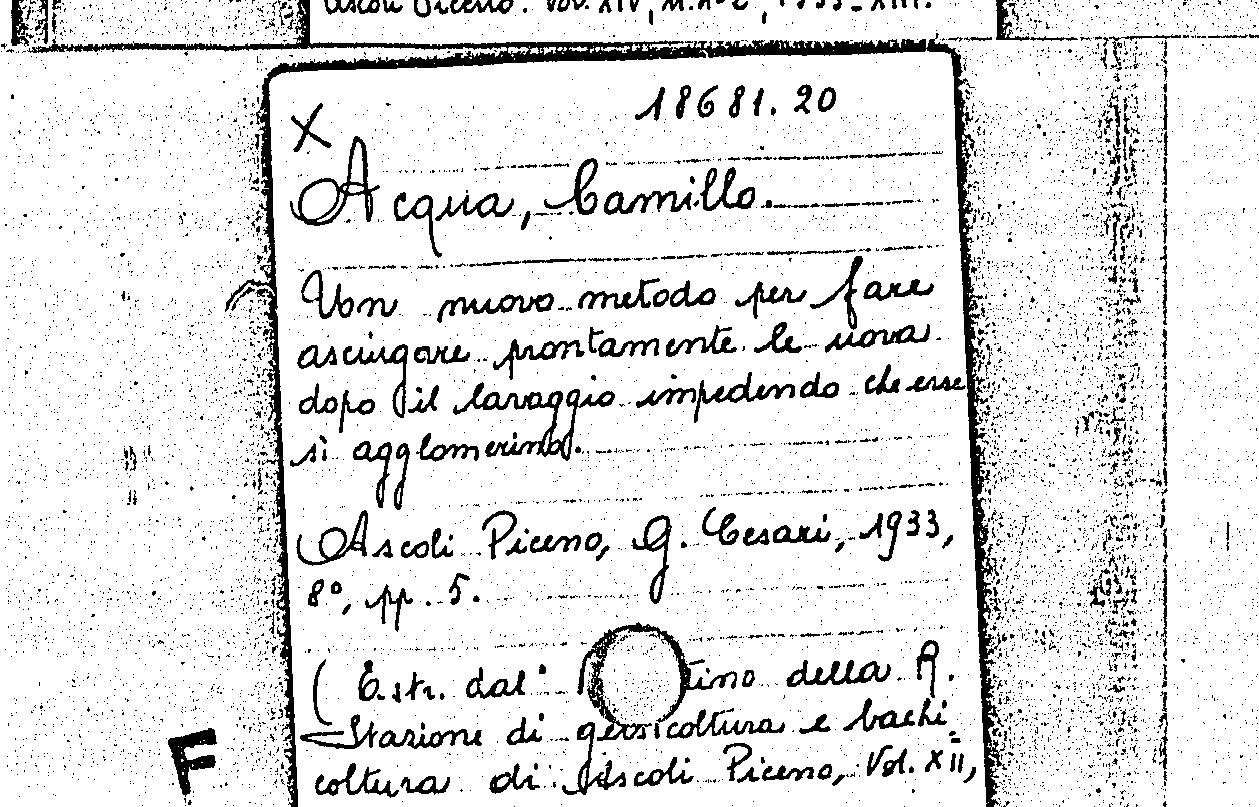 Ascoli Piceno. Vol. XIV, N. 1-2, 1935-XIII.
X
18681.20
Acqua, Camillo.
Un nuovo metodo per fare
asciugare prontamente le uova
dopo il lavaggio impedendo che esse
si agglomerino.
Ascoli Piceno, G. Cesari, 1933,
8°, pp. 5.
(Estr. dal tino della R.
Stazione di gelsicoltura e bachi=
coltura di Ascoli Piceno, Vol. XII,
F